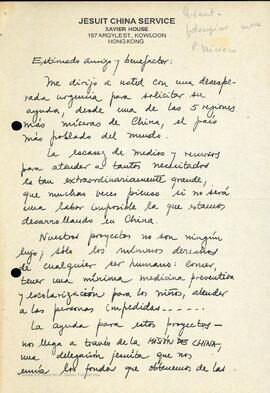 JESUIT CHINA SERVICE
XAVIER HOUSE
167 ARGYLE ST., KOWLOON
HONGKONG
Estimado amigo y benefactor:
Me dirijo a usted con una desespe-
rada urgencia para solicitar su
ayuda, desde una de las 5 regiones
más míseras de China, el país
más poblado del mundo.
La escasez de medios y recursos
para atender a tantos necesitados
es tan extraordinariamente grande,
que muchas veces pienso si no será
una labor imposible la que estamos
desarrollando en China.
Nuestros proyectos no son ningún
lujo; sólo los mínimos derechos
de cualquier ser humano: comer,
tener una mínima medicina preventiva
y escolarización para los niños, atender
a las personas impedidas......
La ayuda para estos proyectos
nos llega a través de la MISIÓN DE CHINA,
una delegación jesuita que nos
envía los fondos que obtenemos de las